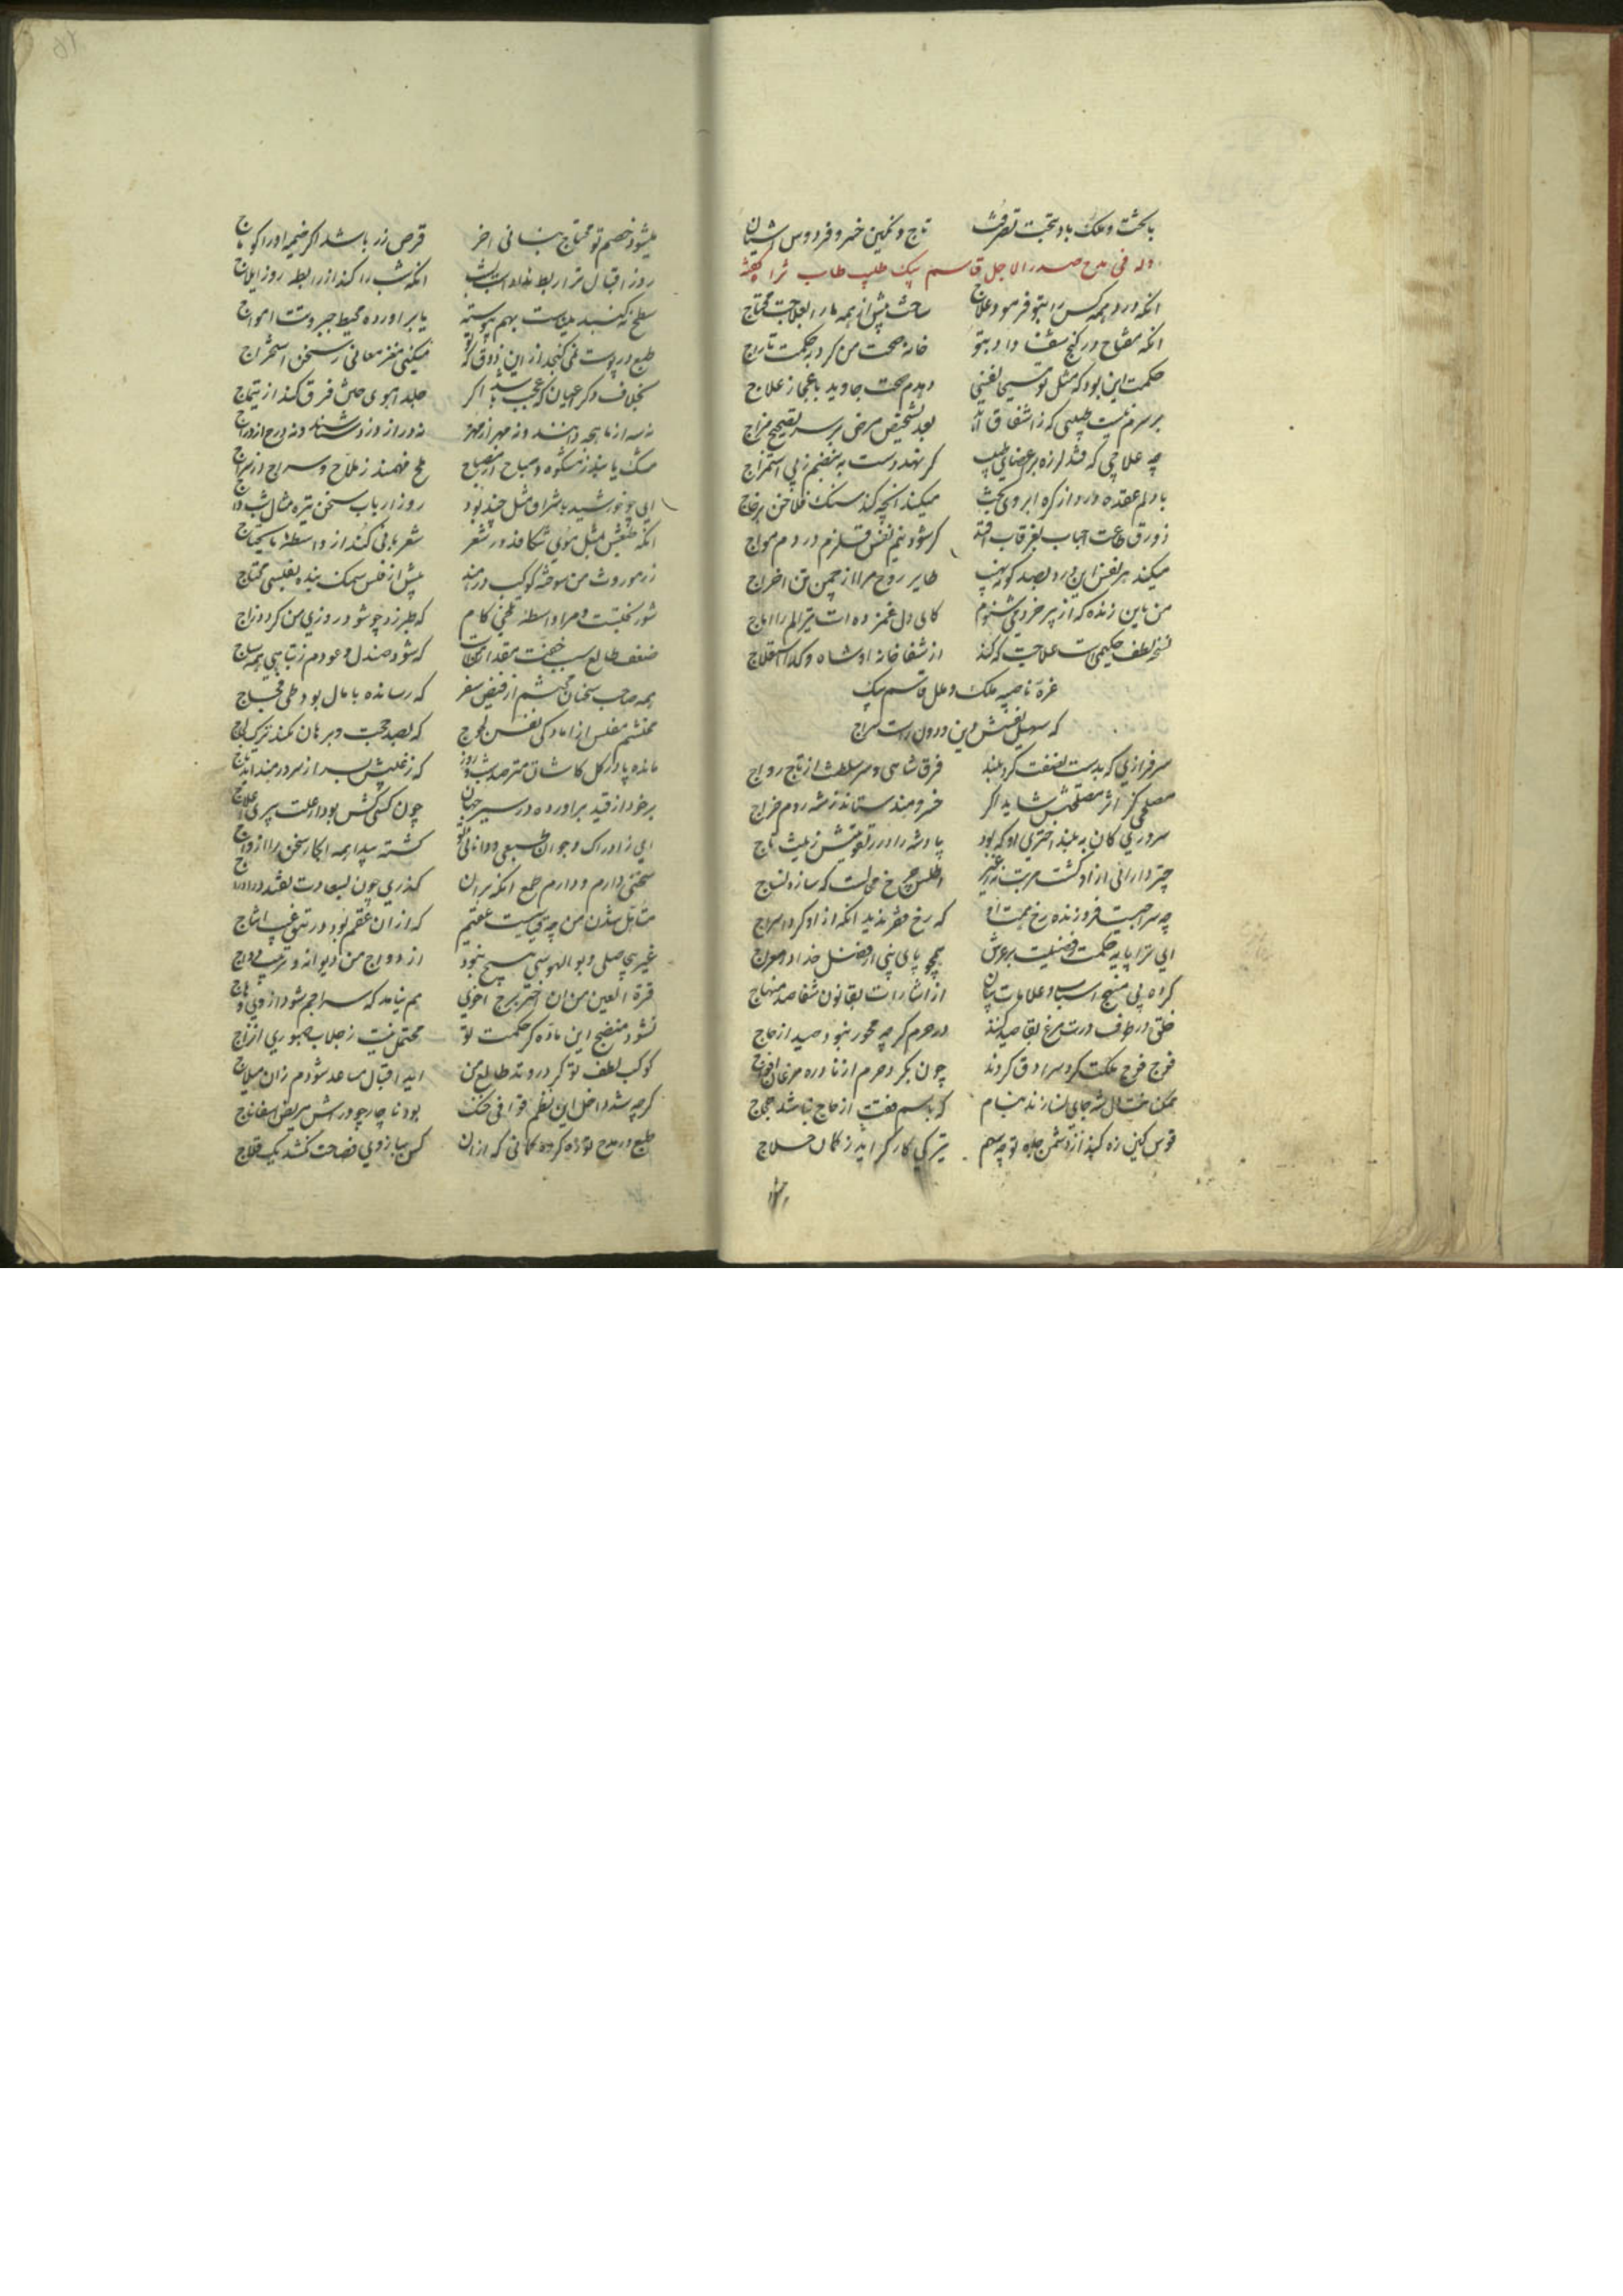 باتخت و ملک باد بتخت تصرفت تاج و نگین خسرو فردوس اشیان
وله فی مدح صدر الاجل قاسم بیک طبیب طاب ثراه گفته
انکه درد همه کس را بتو فرمود علاج ساخت پیش از همه ما را بعلاجت محتاج
انکه مفتاح در کنج شفا داد بتو خانه صحت من کرد به حکمت تاراج
حکمت این بود که مثل تو مسیحا نفسی دهدم صحت جاوید باعجاز علاج
برسرم نیست طبیبی که ز اشفاق اید بعد تشخیص مرض بر سر تصحیح مزاج
چه علاجی که فتد لرزه بر اعضای طبیب گر نهد دست به نبضم ز پی استمزاج
با دلم عقده دارد از گره ابروی بخت میکند انچه کند سنک فلاخن بزجاج
زورق طاقت احباب بغرقاب افتد گر شود نیم نفس قلزم دردم مواج
میکند هر نفس این درد بصد گونه نهیب طایر روح مرا از چمن تن اخراج
من باین زنده که از پیر خرد می شنوم کای دل غمزده ات تیر الم را اماج
نسخه لطف حکیمی است علاجت که کند از شفاخانه او شاه و گدا استعلاج
غره ناصیه ملک و ملل قاسم بیک
که سهیل نفسش دین و دول راست سراج
سرفرازی که بدست نصفت کرد بلند فرق شاهی و سر سلطنت از تاج رواج
مصلحی کز اثر مصلحتش شاید اگر خسرو هند ستاند ز شه روم خراج
سروری کان به بلند اختری او که بود پادشه را در تقویتش زینت تاج
چتر دارائی ازو گشت مرتب اطلس چرخ محالست که سازد نساج
چه سراجیست فروزنده رخ همت او که رخ فقر ندید انکه ازو کرد اسراج
ای ترا پایه حکمت فضیلت بر عرش همچو پای نبی از فضل خدا در معراج
گر اه پی منهج اسباب و علامات بیان از اشارات بقانون شفا صد منهاج
خلق در طوف درت مرغ بقا صید کنند در حرم گرچه مجوز نبود صید از حاج
فوج فوج ملکت گرد سرادق گردند چون بگرد حرم از نادره مرغان افواج
ممکن خشت ال شه جای نسازند بشام گر باسم نقیب از حاج نباشد حجاج
قوس کین زه کند از دشمن جاه تو چه سهم تیر کی کارگر اید ز کمان حلاج
میشود خصم تو محتاج بنانی اخر قرص زر باشد اگر ضمیمه او را کوماج
روز اقبال ترا ربط نداد است بشب انکه شب را کند از رابطه روز ایلاج
سطح نه گنبد میناست بهم پیوسته یا براورده محیط جبروت امواج
طبع در پوست نمی گنجد از این ذوق که تو میکنی مغز معانی ز سخن استخراج
بخلاف دگر اعیان که عجب باشد اگر جلد اهوی ختن فرق کند از تیماج
نه سها از ماهچه دانند و نه مهر از مهره نه دراز ورز شناسند و نه درج از دراج
مشک یابند ز مشکوه و صباح از مصباح ملح فهمند ز ملاح و سراج از سراج
ای چو خورشید باشراق مثل چند بود روز ارباب سخن تیره مثال شب داج
انکه طبعش مثل موی شکافد در شعر شعر بافی کند از واسطه مایحتاج
زر موروث من سوخته کوکب در هند بیش از فلس سمک بنده بفلسی محتاج
شور بختیست مرا واسطه تلخی کام که طبرزد چو شود روزی من گردد زاج
ضعف طالع سبب خفت مقدارمن است که شود صندل و عودم ز تباهی همه ساج
همه صاحب سخنان محتشم از فیض سفر که رسانده بامال بود طی فجاج
محتشم مفلس از امادگی نفس لجوج که بصد حجت و برهان نکند ترک لجاج
مانده پا در گل کاشان مترصد شب و روز که ز غلیش بسر از سر درمند اید تاج
برخود از قید براورده در سیر جهان چون کنی کش بود از علت پیری افلاج
ای ز ادراک و جوان طبعی و دانائی تو گشته پیدا همه ابکار سخن را ازدواج
سختی دارم و دارم طمع انکه بران گذری چون بسعادت نفتد در ادراج
متاهل شدن من چه قیاسیست عقیم که از ان عقم بود در تتق غیب انتاج
غیر بیحاصلی و بوالهوسی هیچ نبود ازدواج من دیوانه و ترتیب دواج
قرة العین من ان اختر برج اخوی هم نیامد که سراجم شود از وی وهاج
نشود منضج این ماده گر حکمت تو محتمل نیست ز جلاب صبوری انضاج
کوکب لطف تو گر در وتد طالع من اید اقبال مساعد شودم زان میلاج
گرچه شد داخل این نظم قوافی خنک بود ناچار چو در اش مریض اسفاناج
طبع در مدح تو زه کرده کمانی که از ان کس ببازوی فصاحت نکشد یک قلاج